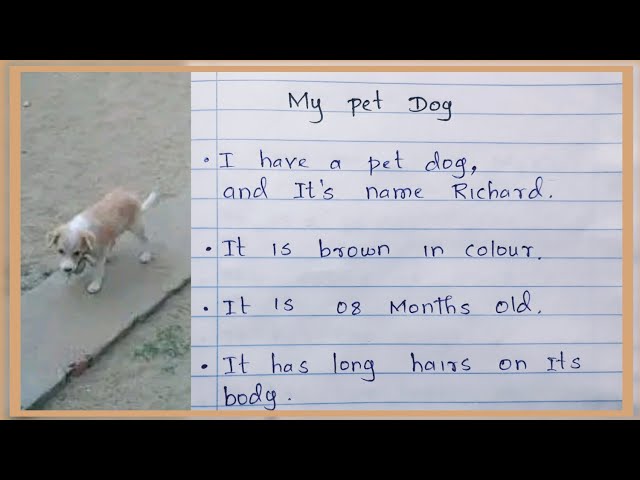 My pet Dog
• I have a pet dog,
and It's name Richard.
• It is brown in colour.
• It is 08 Months old.
• It has long hairs on Its
body.